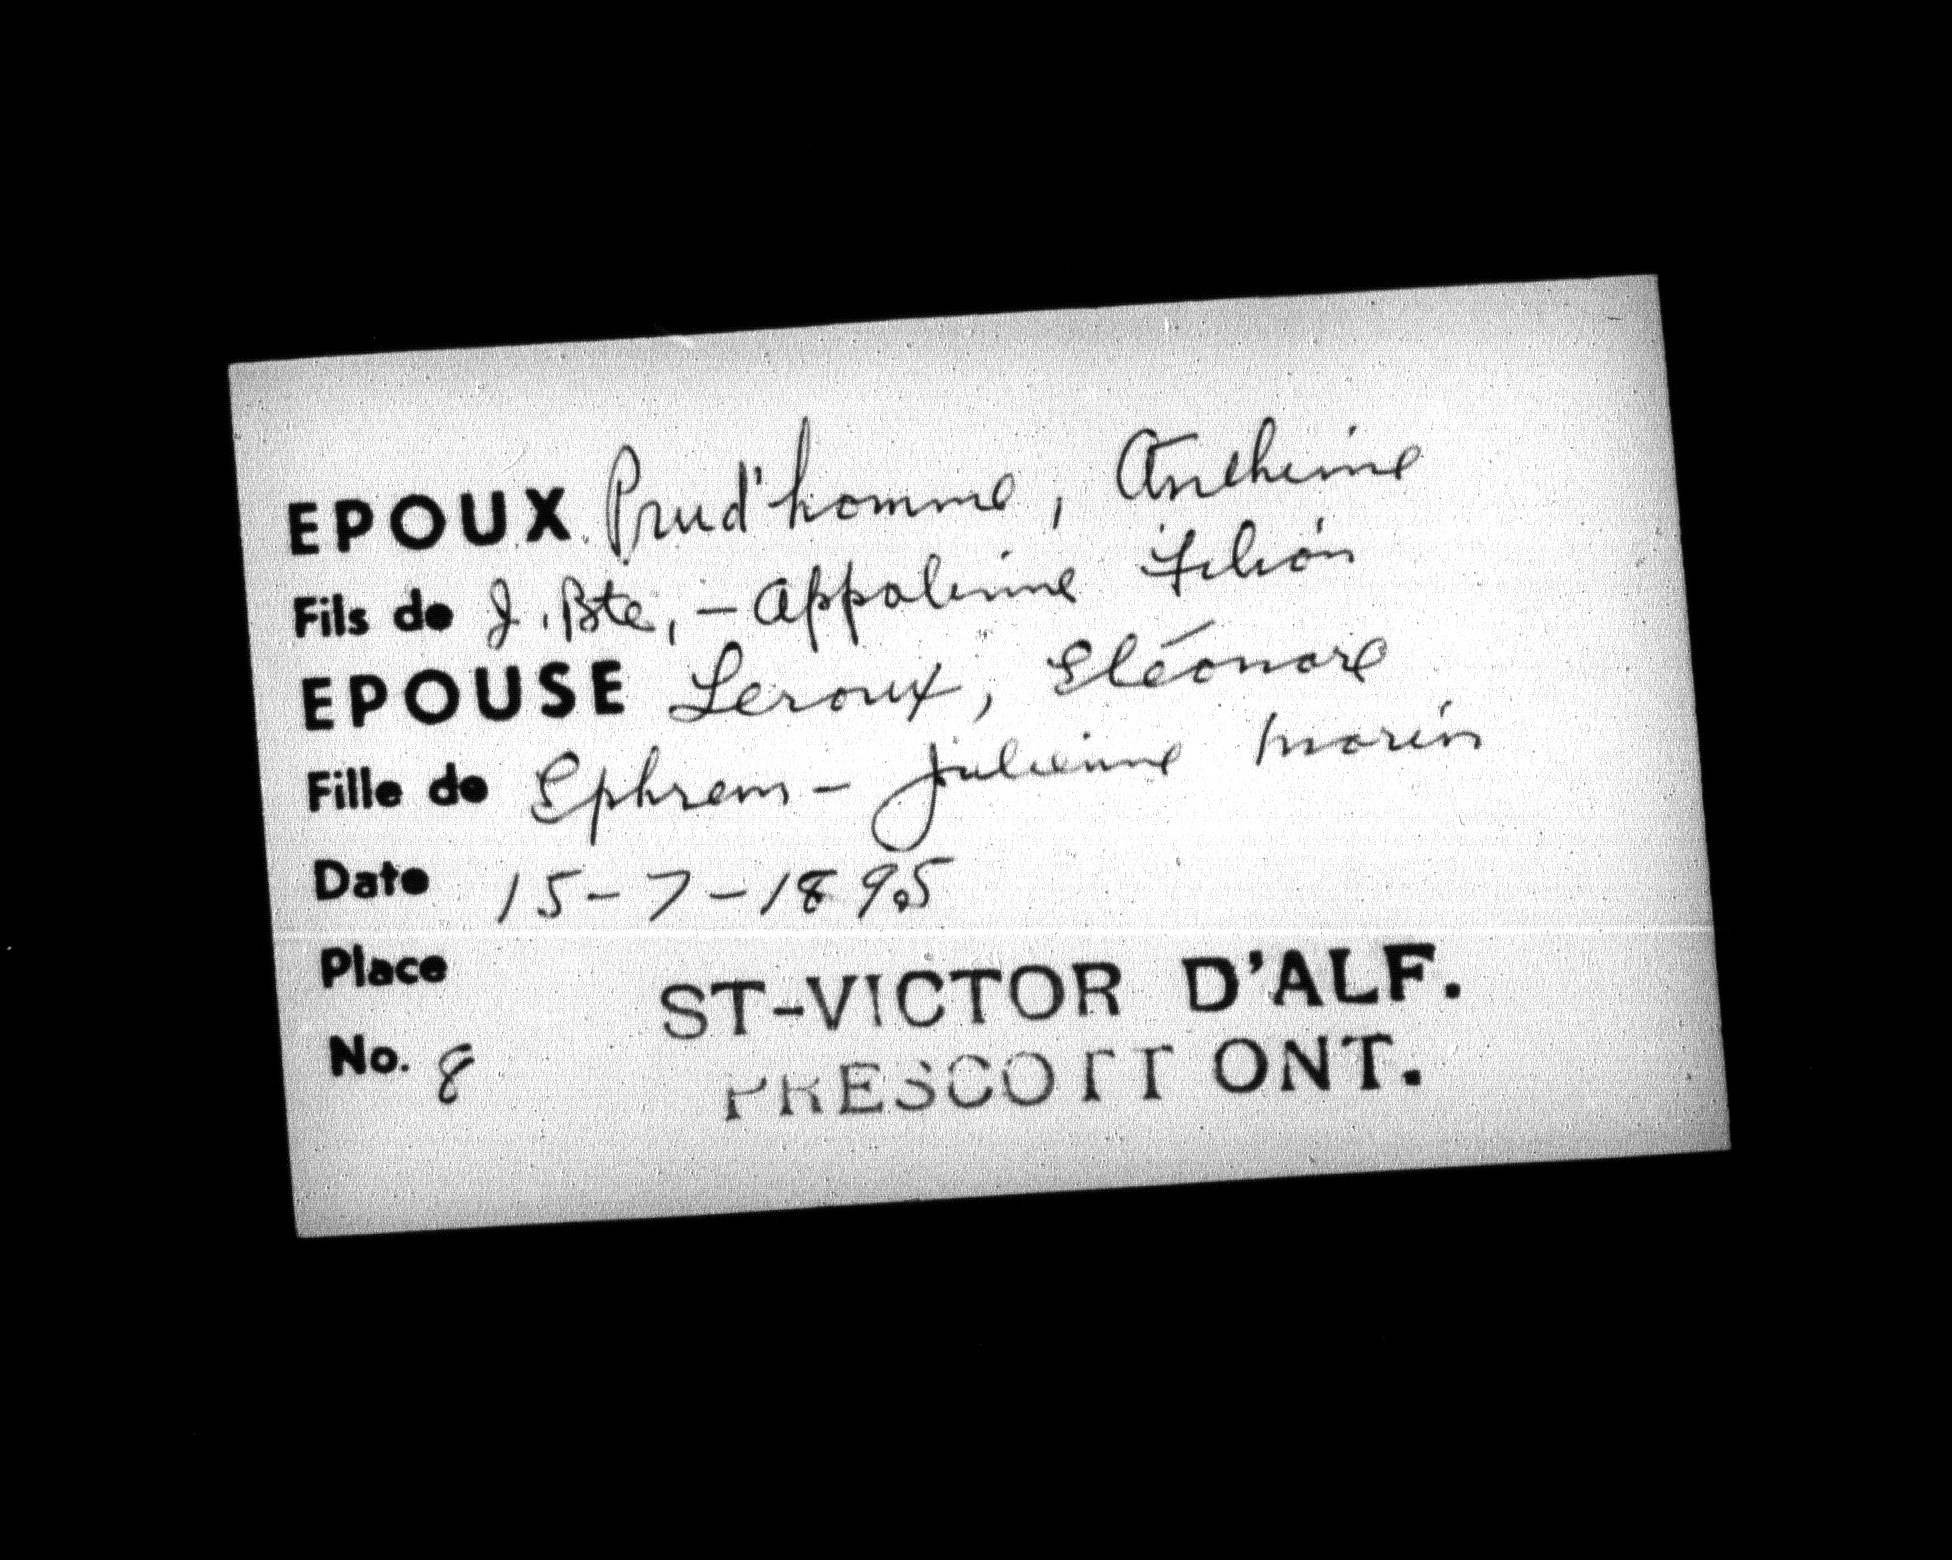 EPOUX Prud'homme, Anthime
Fils de J. Bte, - Appolinine Filion
EPOUSE Leroux, Eléonore
Fille de Ephrem - Julienne Morin
Date 15-7-1895
Place ST-VICTOR D'ALF.
No. 8 PRESCOTT ONT.